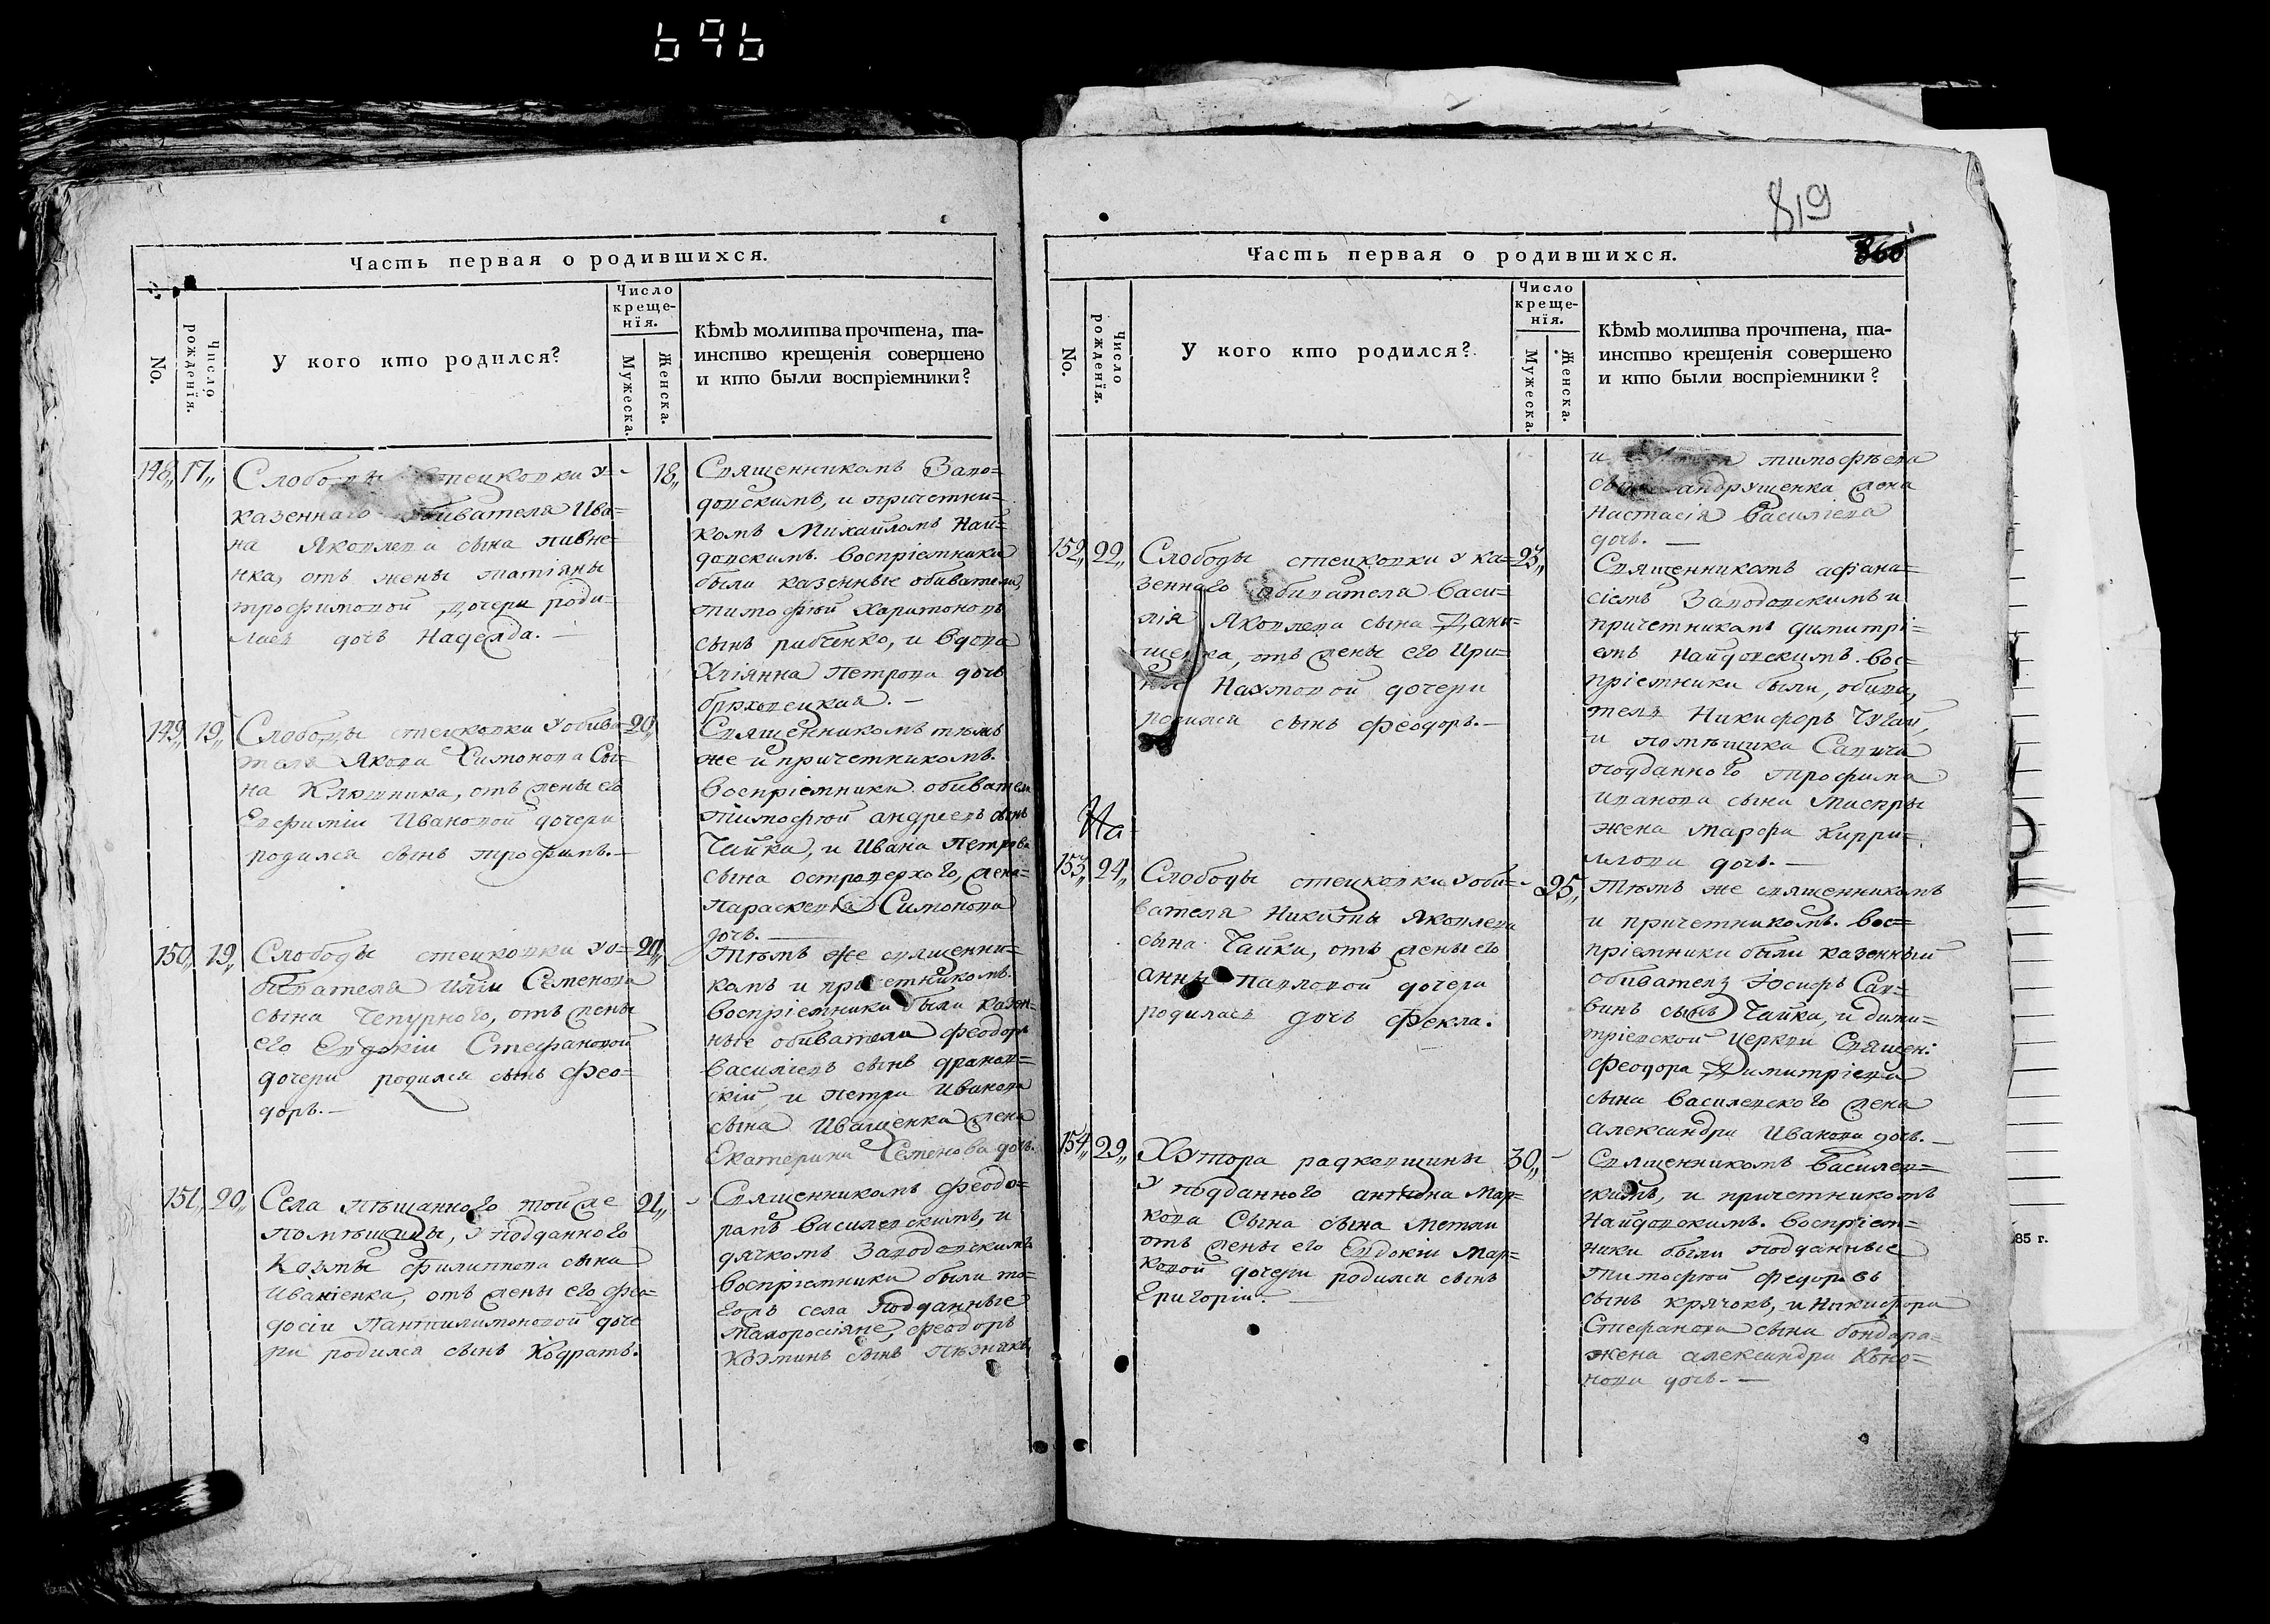 696
Часть первая о родившихся.
No.
Число рожденія.
У кого кто родился?
Число креще-нія.
Мужеска.
Женска.
Кѣмъ молитва прочтена, та-
инство крещенія совершено
и кто были воспріемники?
148,, 17,, 18,,
Слободы Стецковки у
казеннаго обивателя Ива-
на Яковлева сына пивне-
нка, отъ жены татіяны
трофимовой дочери роди-
лась дочь Надежда. —
Священникомъ Заво-
довскимъ, и причетни-
комъ Михайломъ Най-
довскимъ. воспріемники
были казенные обиватели,
тимофѣй Харитоновъ
сынъ рибченко, и вдова
Уліянна Петрова дочь
брюховецкая. —
149,, 19,, 20,,
Слободы стецковки у обива-
теля Якова Симонова Сы-
на Ключника, отъ жены его
Евфиміи Ивановой дочери
родился сынъ трофимъ. —
Священникомъ тѣмъ
же и причетникомъ.
воспріемники обиватели
тимофѣй андреевъ сынъ
Чайка, и Ивана Петрова
сына островерхого, жена
Параскевія Симонова
дочь. —
150,, 19,, 20,,
Слободы стецковки у о-
бивателя Иліи Семенова
сына Чепурного, отъ жены
его Евдокіи Стефановой
дочери родился сынъ Фео-
доръ. —
Тѣмъ же священни-
комъ и причетникомъ.
воспріемники были казен-
ные обиватели феодоръ
василіевъ сынъ драновс-
кій, и петра Иванова
сына Иващенка жена
Екатерина Семенова дочь.
151,, 20,, 21,,
Села пѣщанного той же
помѣщицы, у подданного
Козмы филиппова сына
Иваніенка, отъ жены его фео-
досіи Пантилимоновой доче
ри родился сынъ Кодратъ.
Священникомъ Феодо-
ромъ Василевскимъ, и
дячкомъ Заводовскимъ
воспріемники были то-
гожъ села подданные
малоросіяне, феодоръ
Козминъ сынъ
819
860
Часть первая о родившихся.
No.
Число рожденія.
У кого кто родился?
Число креще-нія.
Мужеска.
Женска.
Кѣмъ молитва прочтена, та-
инство крещенія совершено
и кто были воспріемники?
и тимофѣева
сына андрущенка жена
Настасія Василіева
дочь. —
152,, 22,, 23,,
Слободы стецковки у ка-
зеннаго обивателя Васи-
лія Яковлева сына Дани-
щенка, отъ жены его Ири-
ны Наумовой дочери
родился сынъ феодоръ. —
Священникомъ афана-
сіемъ Заводовскимъ и
причетникомъ димитрі-
емъ Найдовскимъ. вос-
пріемники были, обива-
тель Никифоръ Чугай,
и помѣщика Савича
подданного трофима
иванова сына
жена марфа Кирри-
лова дочь. —
На
153,, 24,, 25,,
Слободы стецковки у оби-
вателя Никиты Яковлева
сына Чайки, отъ жены его
анны Павловой дочери
родилась дочь Фекла.
Тѣмъ же священникомъ
и причетникомъ. вос-
пріемники были казенный
обиватель Іосифъ Сав-
винъ сынъ Чайка, и дими-
тріевской церкви Священ:
Феодора Димитріева
сына василевского жена
александра Иванова дочь. —
154,, 29,, 30,,
Хутора радковщины
у подданного антона Мар-
кова Сына сына Метли
отъ жены его Евдокіи Мар-
ковой дочери родился сынъ
Григорій. —
Священникомъ василев-
скимъ, и причетникомъ
Найдовскимъ. воспріем-
ники были подданные
тимофѣй федоровъ
сынъ крячокъ, и Никифора
Стефанова сына бондара-
жена александра Коно-
нова дочь. —
85 г.